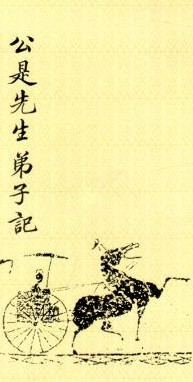 公是先生弟子記